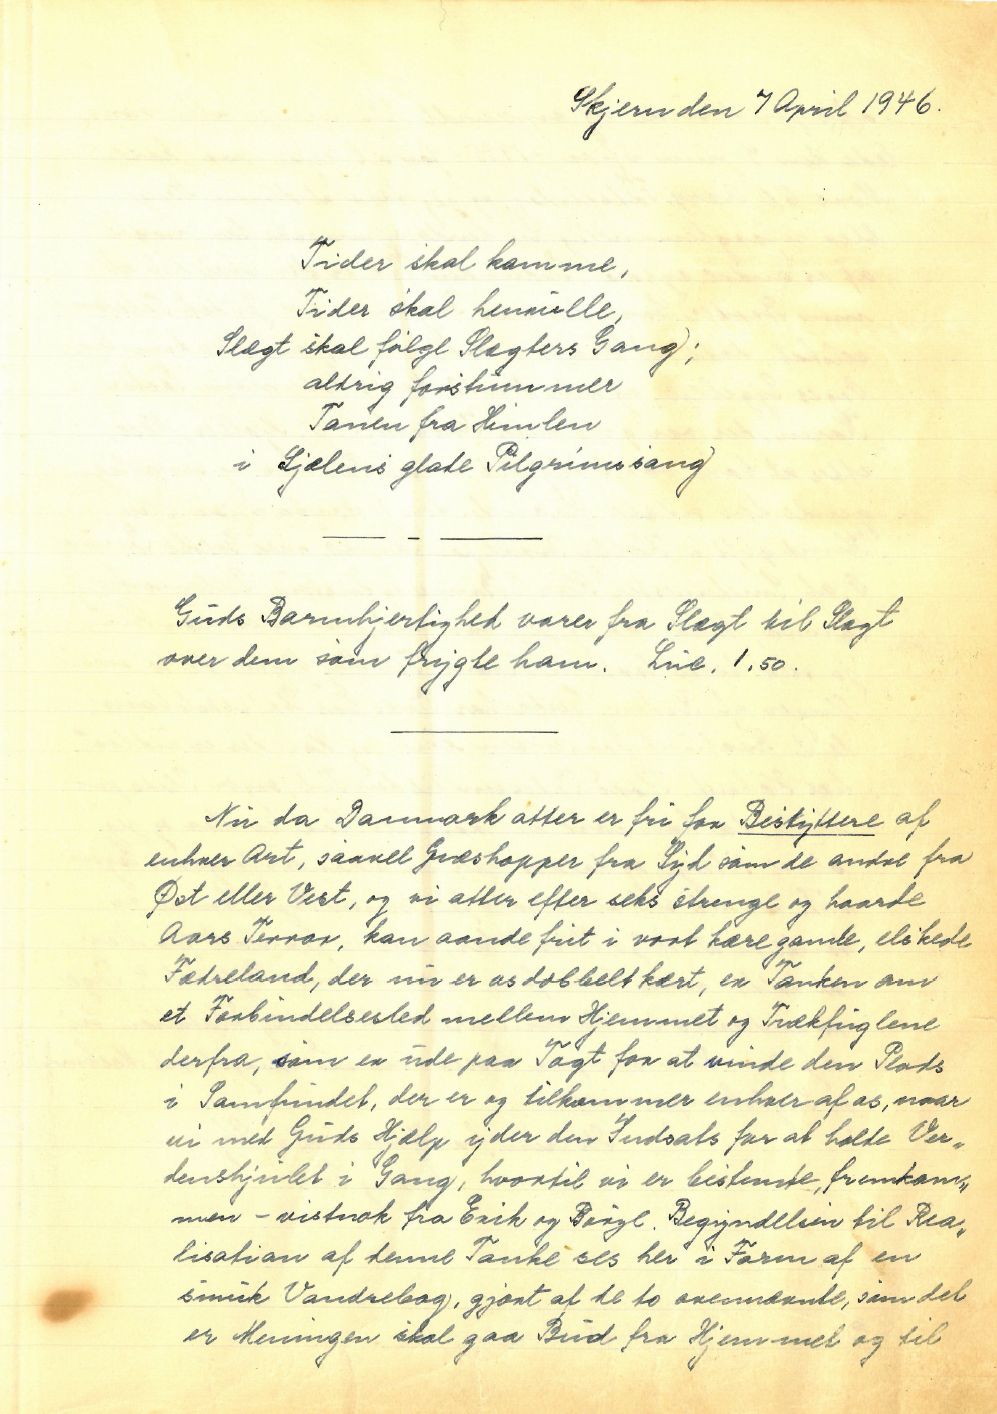 Skjern den 7 April 1946.
Tider skal komme,
Tider skal henrulle,
Slægt skal følge Slægters Gang;
aldrig forstummer
Tonen fra Himlen
i Sjælens glade Pilgrimssang
Guds Barmhjertighed varer fra Slægt til Slægt
over dem som frygte ham. Luc. 1.50.
Nu da Danmark atter er fri for Beskyttere af
enhver Art, saavel Græshopper fra Syd som de andre fra
Øst eller Vest, og vi atter efter seks strenge og haarde
Aars Terror, kan aande frit i vort kære gamle, elskede
Fædreland, der nu er os dobbelt kært, er Tanken om
et Forbindelsesled mellem Hjemmet og Trækfuglene
derfra, som er ude paa Togt for at vinde den Plads
i Samfundet, der er og tilkommer enhver af os, naar
vi med Guds Hjælp yder den Indsats for at holde Ver„
denshjulet i Gang, hvortil vi er bestemte, fremkom„
men – vistnok fra Erik og Børge. Begyndelsen til Rea„
lisation af denne Tanke ses her i Form af en
smuk Vandrebog, gjort af de to ovennævnte, som det
er Meningen skal gaa Bud fra Hjemmet og til